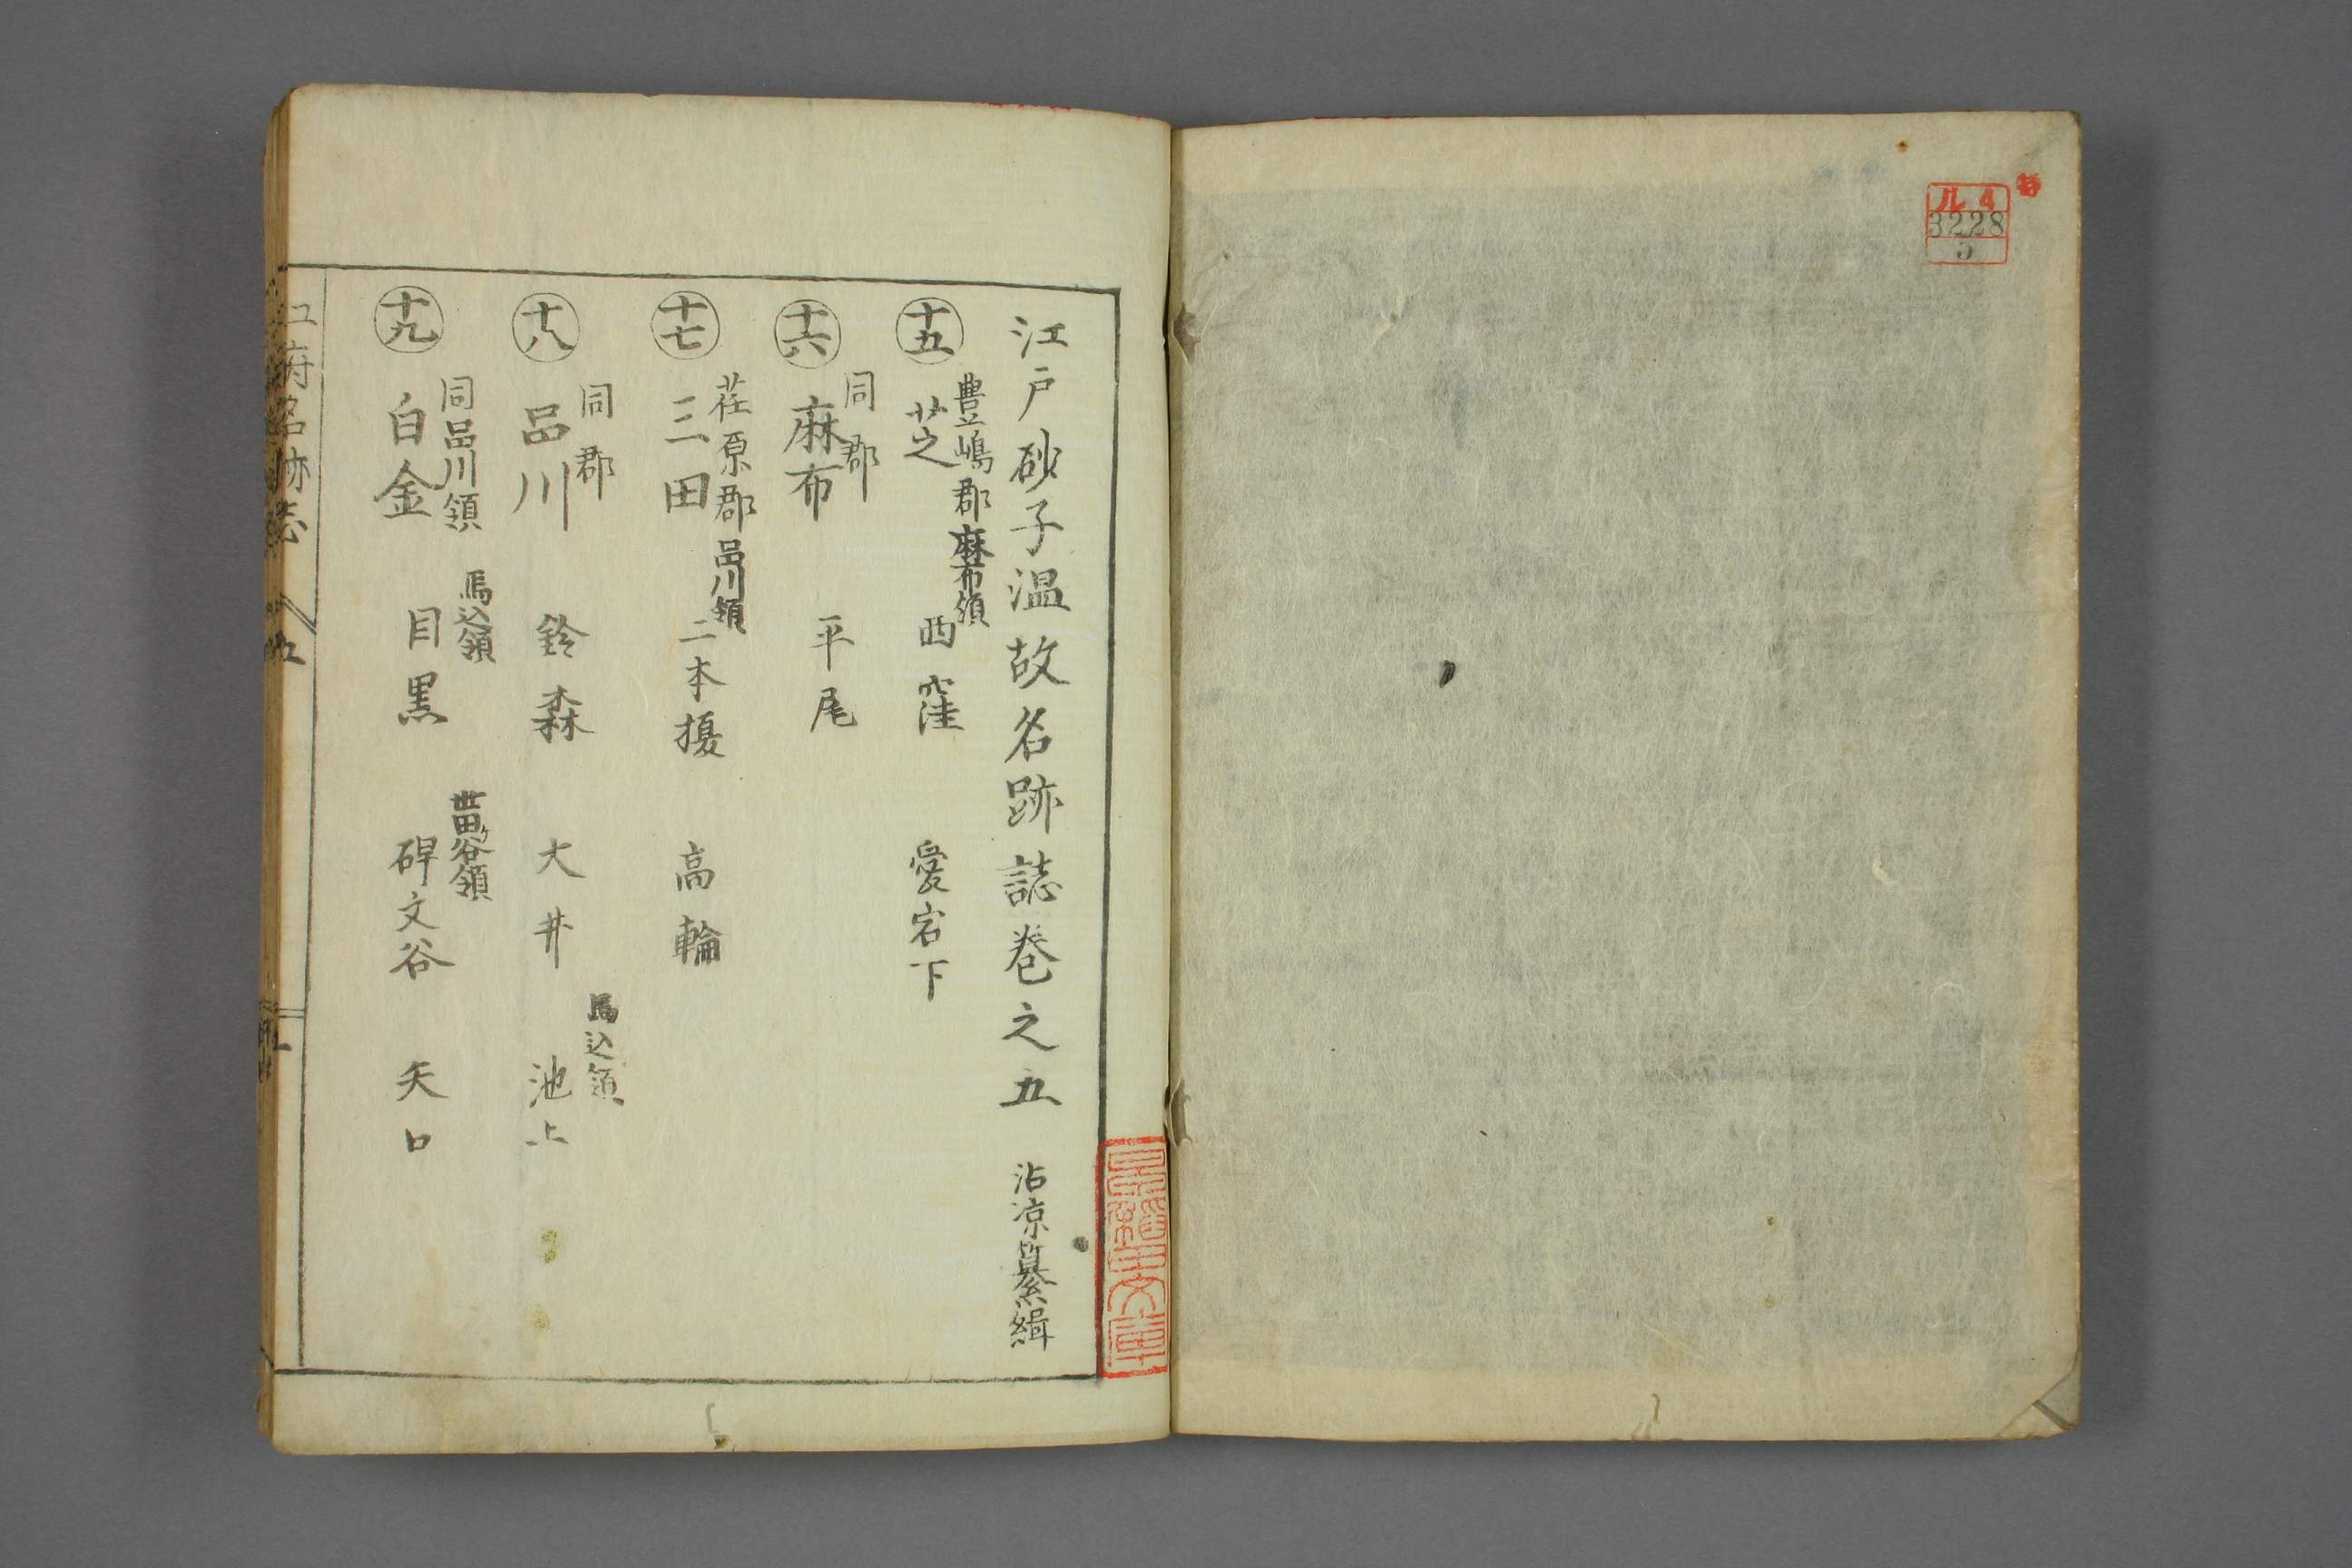 ル4
3228
5
江戸砂子温故名跡誌巻之五 沾凉纂緝
十五 豊嶋郡麻布領
芝 西窪 愛宕下
十六 同郡
麻布 平尾
十七 荏原郡品川領
三田 二本榎 高輪
十八 同郡 馬込領
品川 鈴森 大井 池上
十九 同品川領 馬込領 世田ケ谷領
白金 目黒 碑文谷 矢口
江府名跡志 五